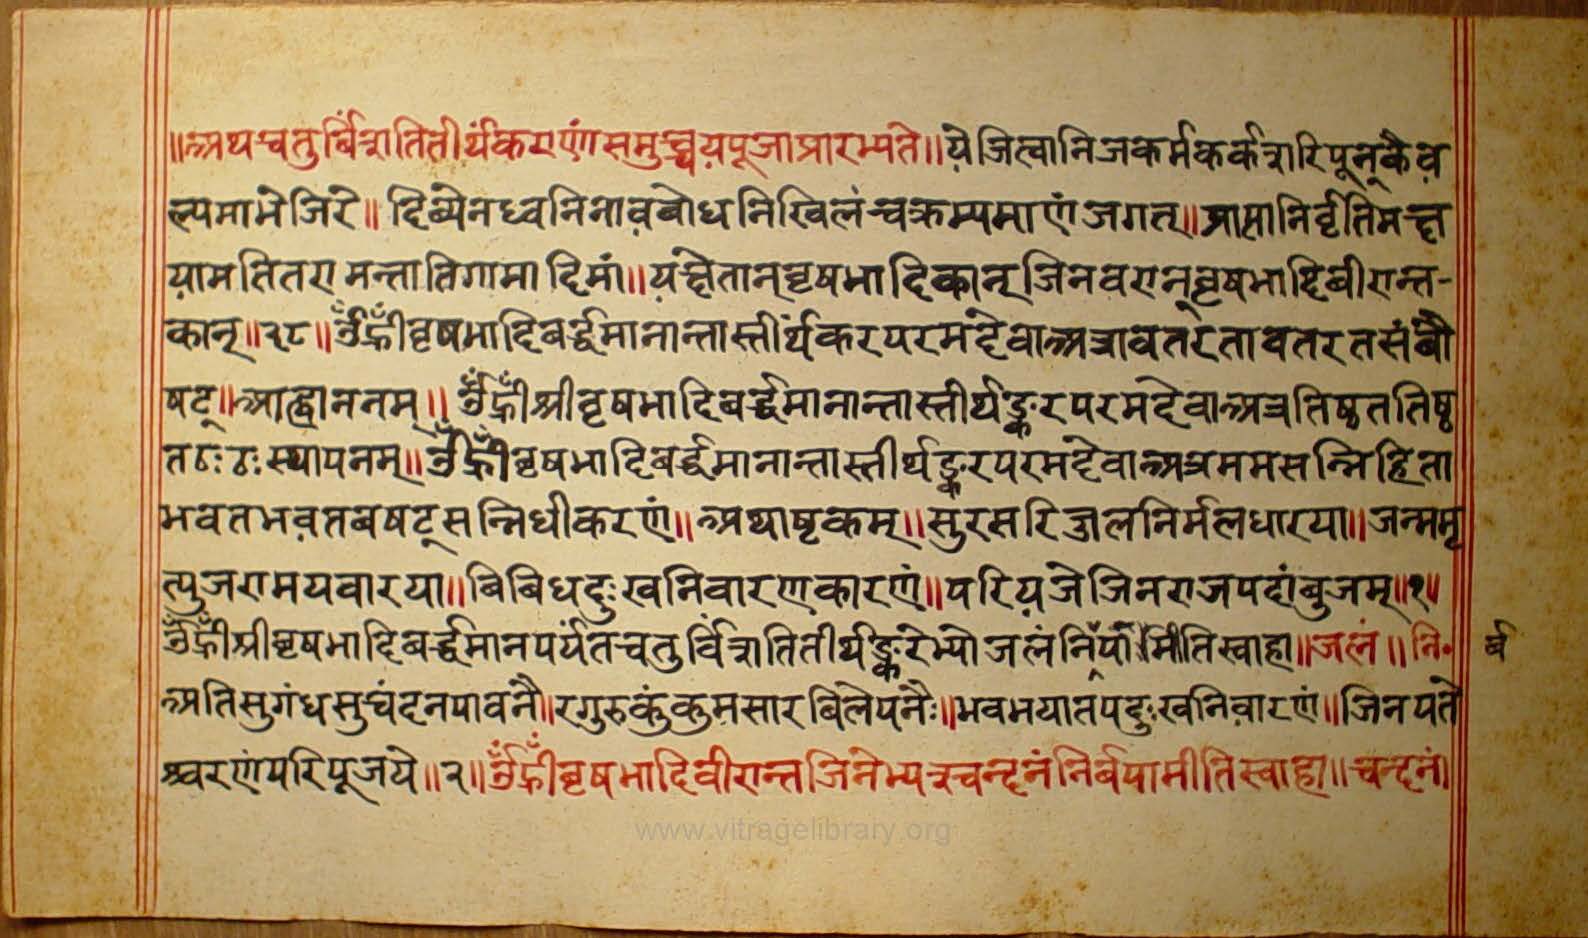 ॥अथ चतुर्बिंशतितीर्थंकराणां समुच्चयपूजा प्रारभ्यते॥ ये जित्वा निजकर्मकर्कशरिपून् कैव
ल्यमाभेजिरे॥ दिव्येन ध्वनिनावबोध निखिलं चक्रम्यमाणं जगत्॥ प्राप्ता निर्वृतिमक्ष
यामतितरामन्तातिगामादिमां॥ यक्ष्येतान् वृषभादिकान् जिनवरान् वृषभादिबीरान्त-
कान्॥२८॥ ॐह्रीं वृषभादिबर्द्धमानान्तास्तीर्थंकरपरमदेवा अत्रावतरतावतरत संबौ
षट्॥ आह्वाननम्॥ ॐह्रीं श्रीवृषभादिबर्द्धमानान्तास्तीर्थङ्करपरमदेवा अत्र तिष्ठत तिष्ठ
त ठः ठः स्थापनम्॥ ॐह्रीं वृषभादिबर्द्धमानान्तास्तीर्थङ्करपरमदेवा अत्र मम सन्निहिता
भवत भवत बषट् सन्निधीकरणं॥ अथाष्टकम्॥ सुरसरिज्जलनिर्मलधारया॥ जन्ममृ
त्युजरामयवारया॥ बिबिधदुःखनिवारणकारणं॥ परियजे जिनराजपदांबुजम्॥१॥
ॐह्रीं श्रीवृषभादिबर्द्धमानपर्यंतचतुर्विंशतितीर्थङ्करेभ्यो जलं निर्पामीति स्वाहा॥ जलं॥ नि॰
र्ब
अतिसुगंधसुचंदनपावनै॥ रगुरुकुंकुमसारबिलेपनैः॥ भवभयातपदुःखनिवारणं॥ जिनपते
श्चरणं परिपूजये॥२॥ ॐह्रीं वृषभादिवीरान्तजिनेभ्यश्चन्दनं निर्बपामीति स्वाहा॥ चन्दनं।
www.vitragelibrary.org